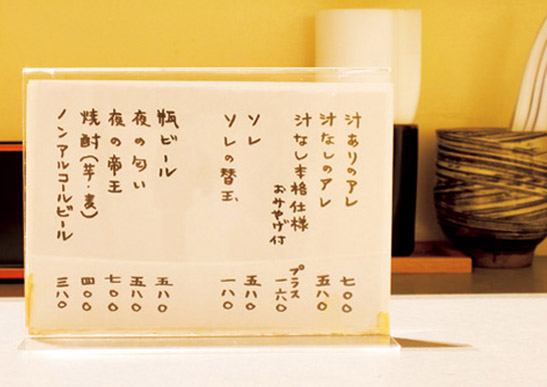 汁ありのアレ 七〇〇
汁なしのアレ 五八〇
汁なし本格仕様 プラス一六〇
おみやげ付
ソレ 五八〇
ソレの替玉、 一八〇
瓶ビール 五八〇
夜の匂い 五八〇
夜の帝王 七〇〇
焼酎(芋・麦) 四〇〇
ノンアルコールビール 三八〇